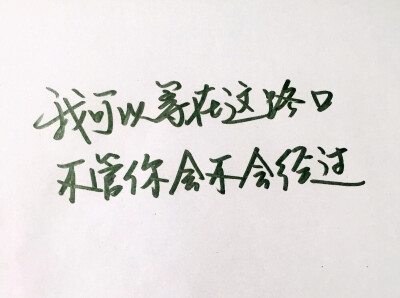 我可以等在这路口
不管你会不会经过